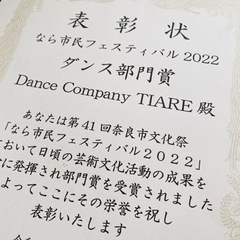 表彰状
なら市民フェスティバル2022
ダンス部門賞
Dance Company TIARE 殿
あなたは第41回奈良市文化祭
「なら市民フェスティバル2022」
おいて日頃の芸術文化活動の成果を
に発揮され部門賞を受賞されました
よってここにその栄誉を祝し
表彰いたします